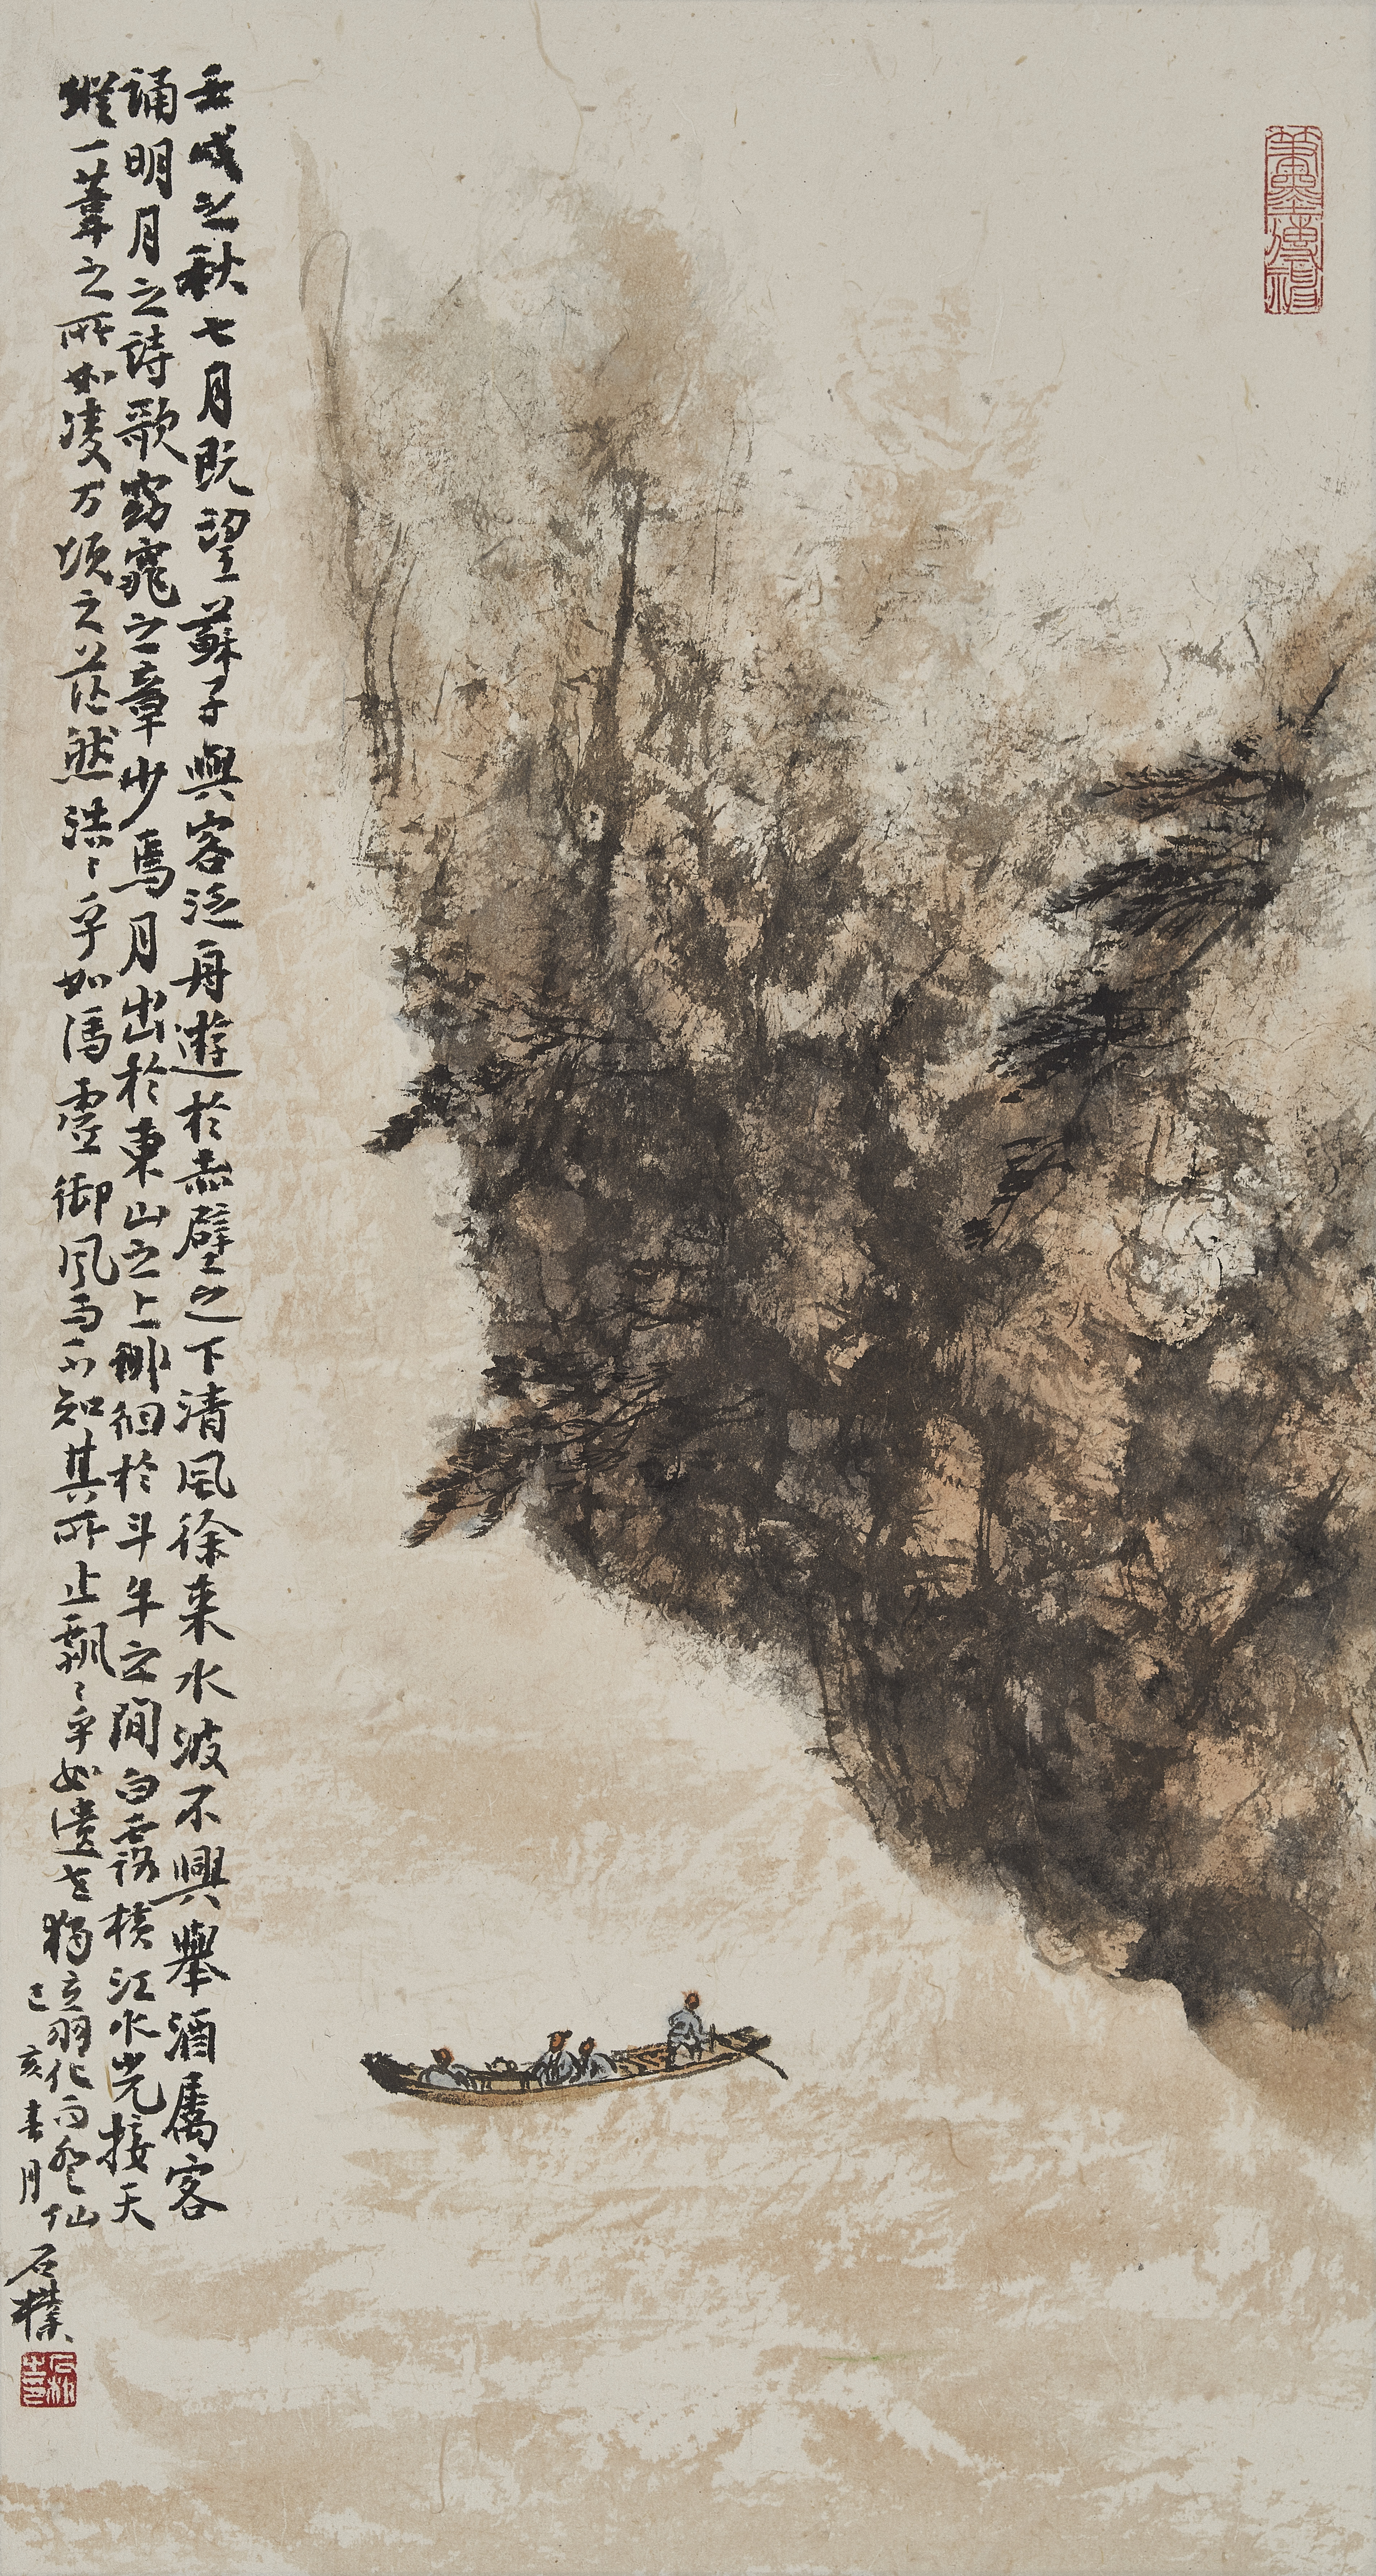 壬戌之秋七月既望蘇子與客泛舟遊於赤壁之下清風徐来水波不興舉酒属客
誦明月之詩歌窈窕之章少焉月出於東山之上徘徊於斗牛之間白露横江水光接天
縱一葦之所如凌万頃之茫然浩〻乎如馮虛御風而不知其所止飄〻乎如遺世獨立羽化而登仙
己亥春月
石樸